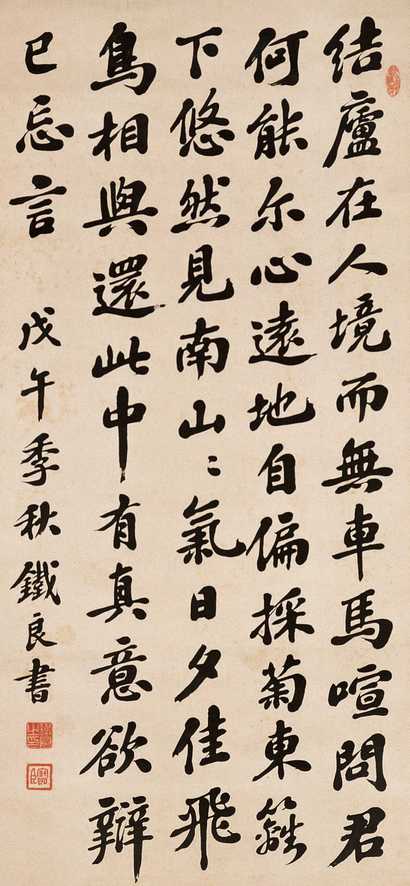 结廬在人境而無車馬喧問君
何能尔心遠地自偏採菊東籬
下悠然見南山〻氣日夕佳飛
鳥相與還此中有真意欲辯
已忘言
戊午季秋鐵良書